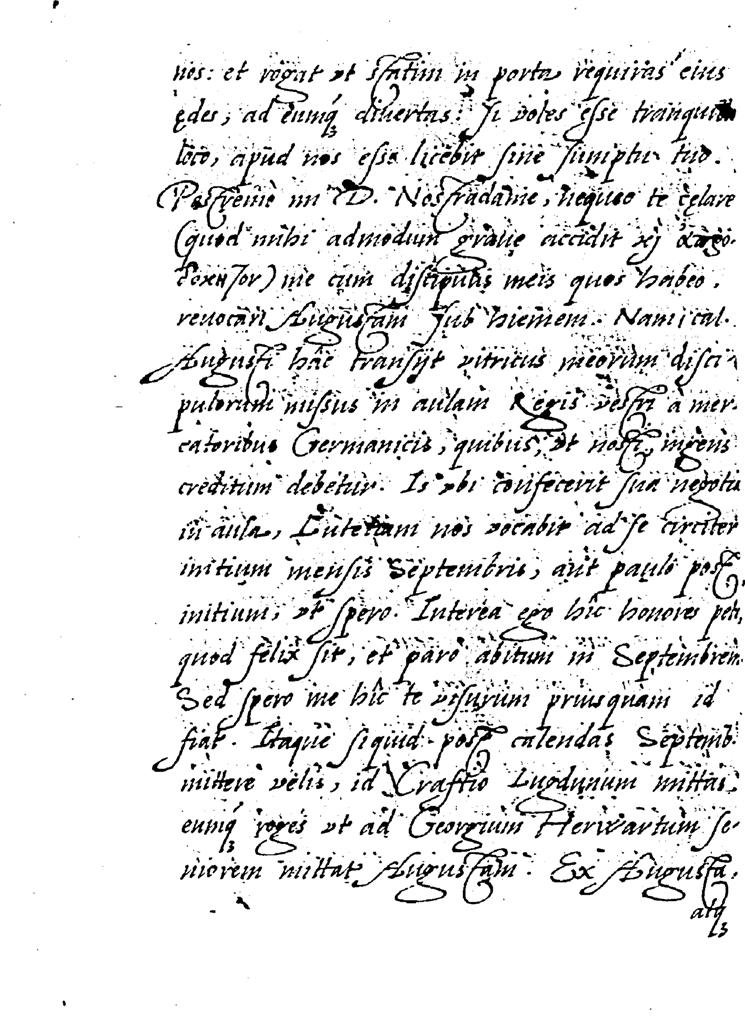 nos: et rogat vt statim in porta requiras eius
ędes, ad eumq́; diuertas. Si voles esse tranquillo
loco, apud nos esse licebit sine sumptu tuo.
Postremò mi D. Nostradame, nequeo te cęlare
(quod mihi admodum graue accidit
me cum discipulis meis quos habeo,
reuocari Augustam sub hiemem. Nam ical.
Augusti hâc transijt vitricus meorum disci-
pulorum missus in aulam Regis vestri à mer-
catoribus Germanicis, quibus, vt nosti, ingens
creditum debetur. Is vbi confecerit sua negotia
in aula, Lutetiam nos vocabit ad se circiter
initium mensis Septembris, aut paulò post
initium, vt spero. Interea ego hîc honores peto,
quod felix sit, et paro abitum in Septembrem.
Sed spero me hîc te visurum priusquam id
fiat. Itaque siquid post calendas Septemb.
mittere velis, id Craftio Lugdunum mittas,
eumq́; roges vt ad Georgium Herwartum se-
niorem mittat Augustam. Ex Augusta,
atq́;